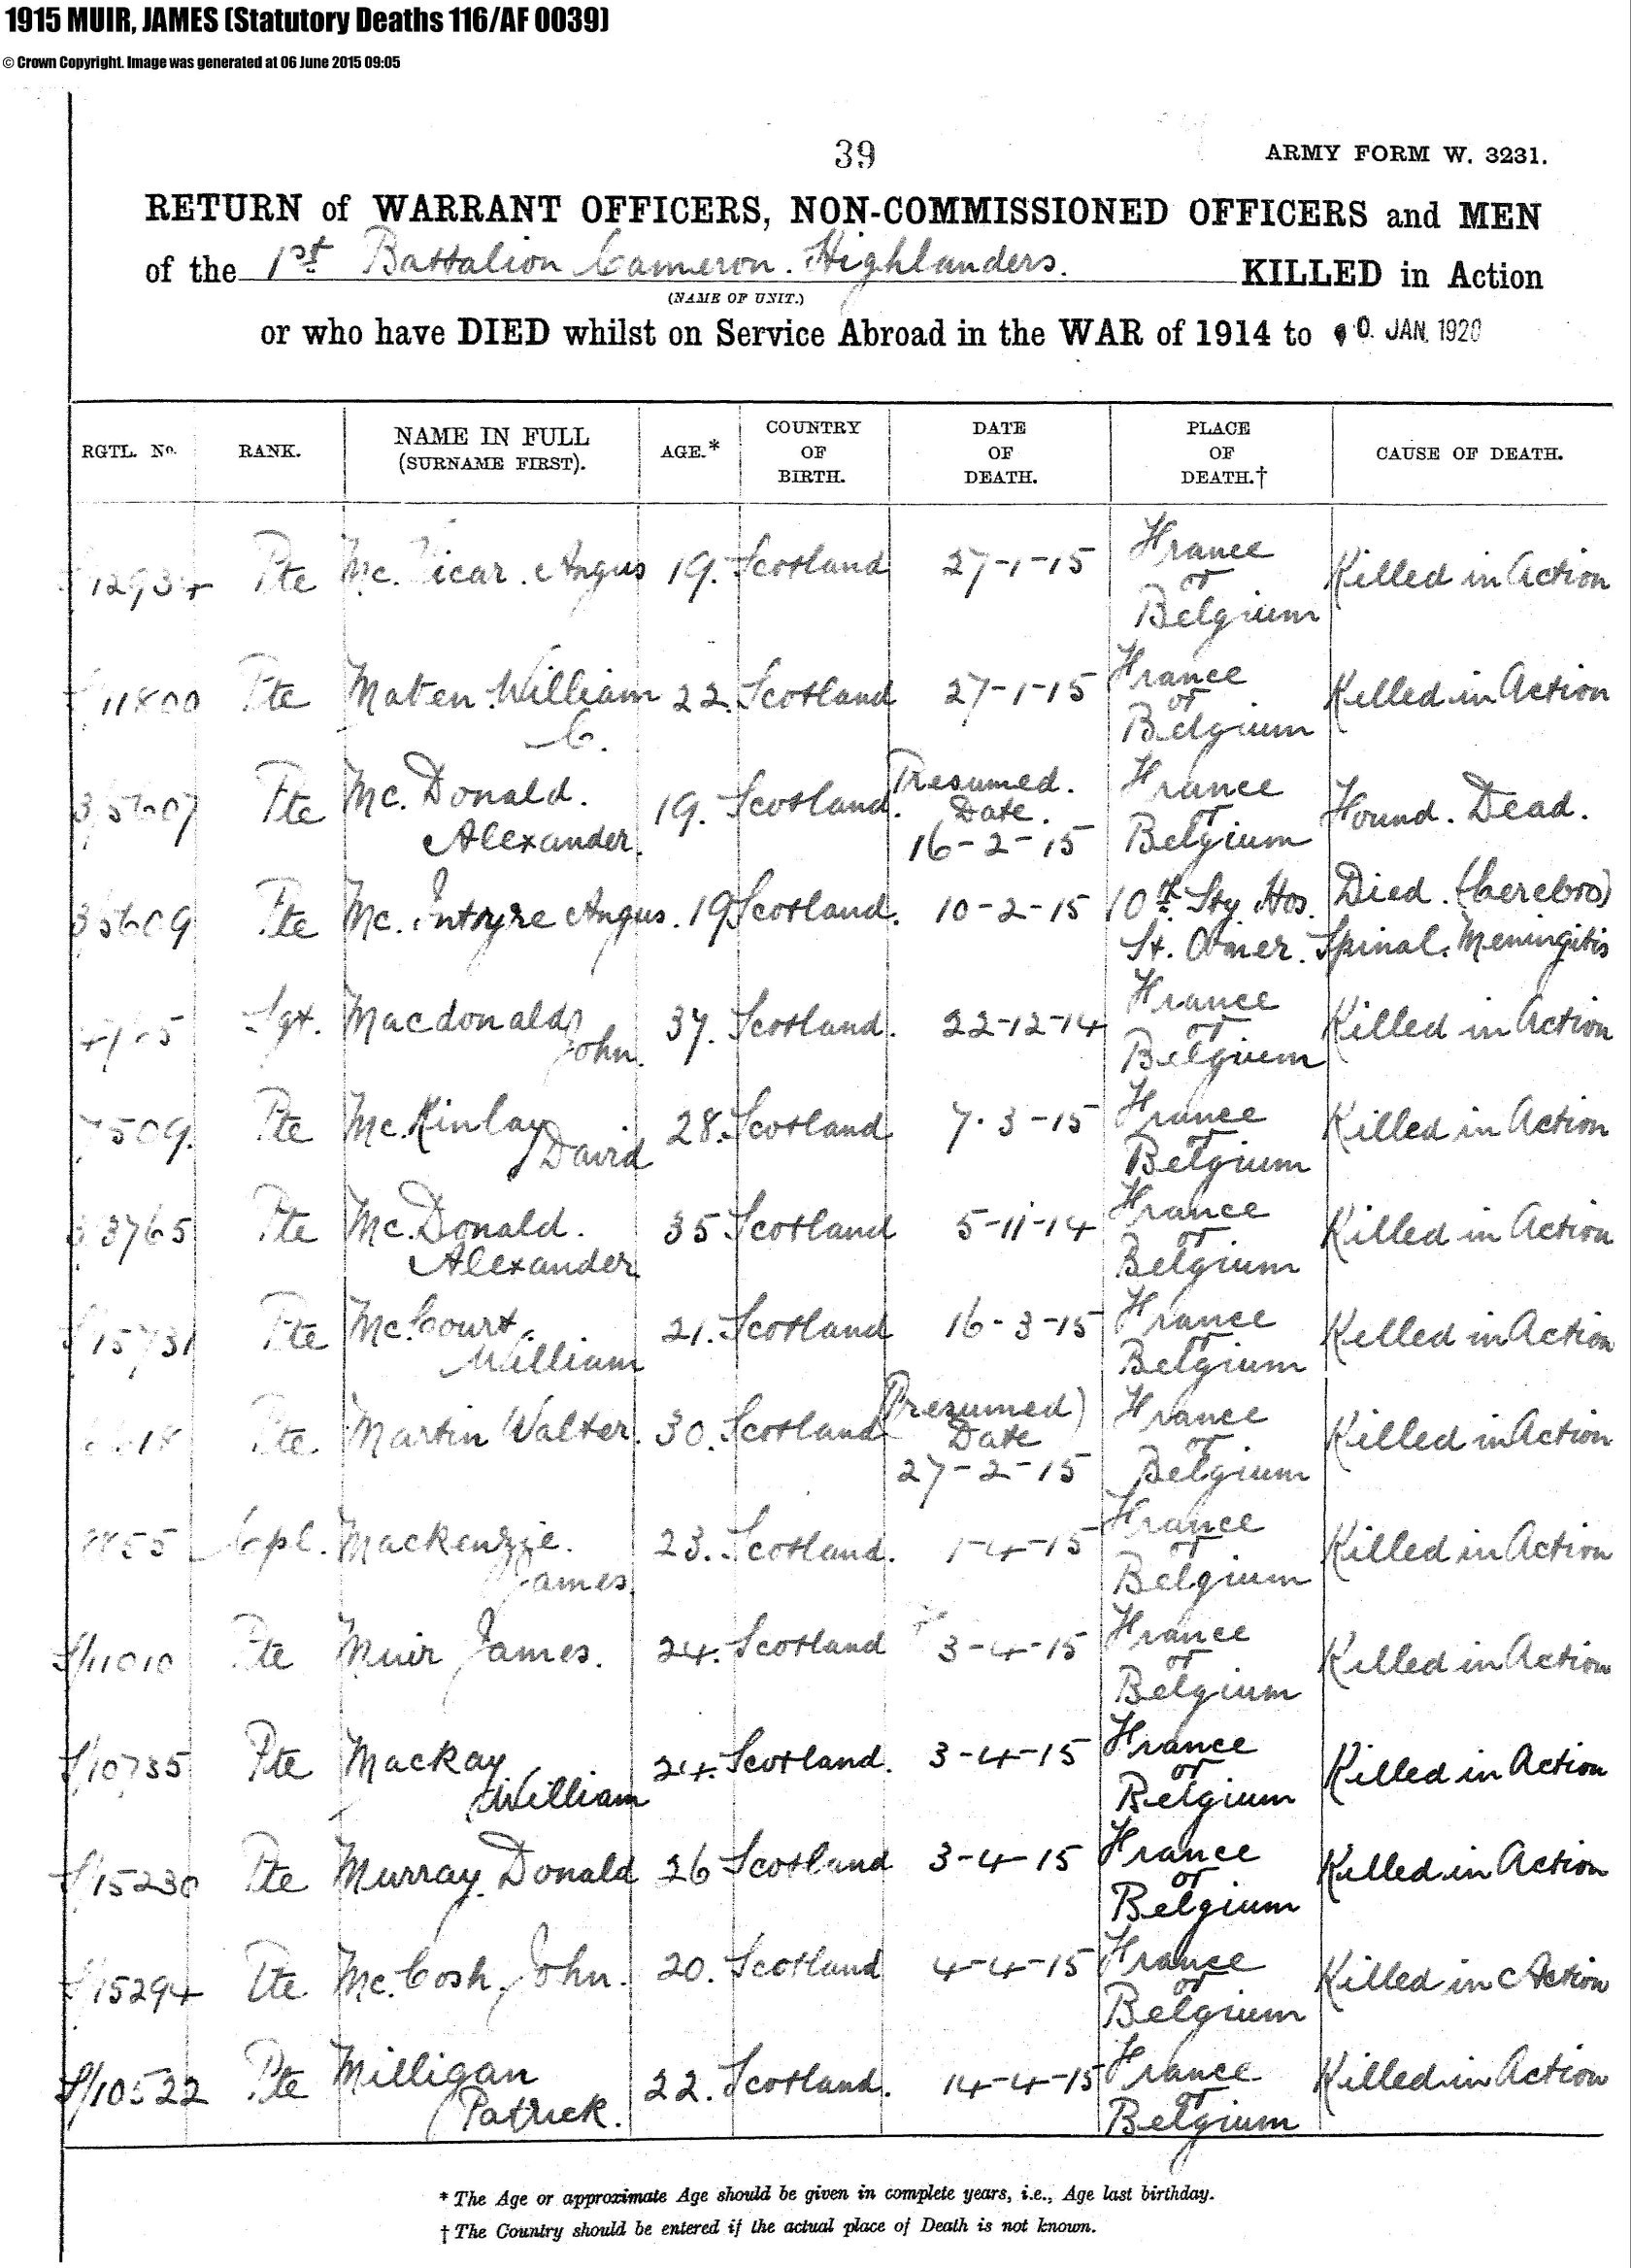 1915 MUIR, JAMES (Statutory Deaths 116/AF 0039)
© Crown Copyright. Image was generated at 06 June 2015 09:05
39
ARMY FORM W. 3231.
RETURN of WARRANT OFFICERS, NON-COMMISSIONED OFFICERS and MEN
of the 1st Battalion Cameron. Highlanders. KILLED in Action
(NAME OF UNIT.)
or who have DIED whilst on Service Abroad in the WAR of 1914 to 0. JAN. 1920
RGTL. No. RANK. NAME IN FULL (SURNAME FIRST). AGE.* COUNTRY OF BIRTH. DATE OF DEATH. PLACE OF DEATH.† CAUSE OF DEATH.
Pte Mc. Vicar. Angus 19. Scotland 27-1-15 France or Belgium Killed in Action
11800 Pte William C. 22. Scotland 27-1-15 France or Belgium Killed in Action
3/5607 Pte Mc. Donald. Alexander. 19. Scotland. Presumed. Date. 16-2-15 France or Belgium Found. Dead.
3/5609 Pte Mc. Intyre Angus. 19 Scotland. 10-2-15 10th Sty. Hos. St. Omer. Died. (Cerebro) Spinal. Meningitis
Sgt. Macdonald John. 37. Scotland. 22-12-14 France or Belgium Killed in Action
7509. Pte Mc. Kinlay David 28. Scotland 7.3-15 France or Belgium Killed in Action
3/3765 Pte Mc. Donald. Alexander. 35 Scotland 5-11-14 France or Belgium Killed in Action
S/15731 Pte Mc. Court. William 21. Scotland 16-3-15 France or Belgium Killed in Action
Pte. Martin Walter. 30. Scotland (Presumed) Date 27-2-15 France or Belgium Killed in Action
Cpl. Mackenzie. James. 23. Scotland. 1-4-15 France or Belgium Killed in Action
S/11010 Pte Muir James. 24. Scotland 3-4-15 France or Belgium Killed in Action
S/10735 Pte Mackay William 24. Scotland. 3-4-15 France or Belgium Killed in Action
S/15230 Pte Murray. Donald 26 Scotland 3-4-15 France or Belgium Killed in Action
S/15294 Pte Mc. Cosh. John. 20. Scotland 4-4-15 France or Belgium Killed in Action
S/10522 Pte Milligan Patrick. 22. Scotland. 14-4-15 France or Belgium Killed in Action
* The Age or approximate Age should be given in complete years, i.e., Age last birthday.
† The Country should be entered if the actual place of Death is not known.